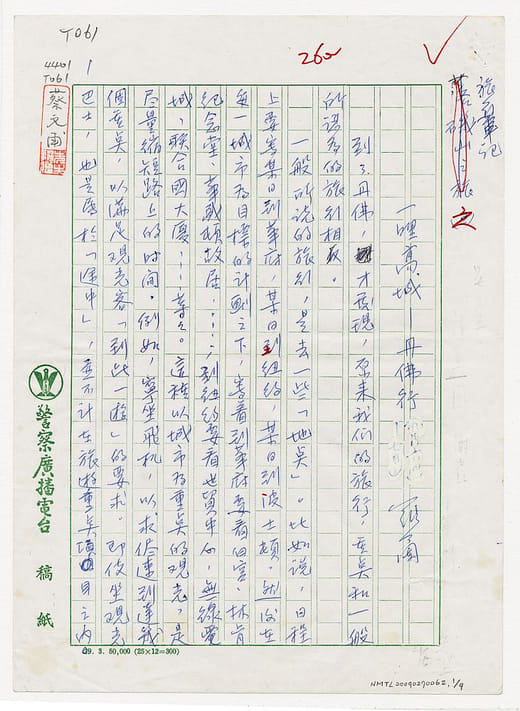 T061
260
4401
T061
1
蔡文甫
旅行筆記
落磯山之旅
之
一哩高城—丹佛行 羅蘭
到了丹佛,才發現,原來我們的旅行,重點和一般
所謂的旅行相反。
一般所說的旅行,是去一些「地點」。比如說,日程
上要寫某日到華府,某日到紐約,某日到波士頓。然後在
每一城市為目標的計劃之下,寫着到華府要看白宮、林肯
紀念堂、華盛頓故居……;到紐約要看世貿中心、無線電
城、聯合國大廈……等等。這種以城市為重點的觀光,是
尽量縮短路上的時間。例如,寧坐飛机,以求儘速到達某
個重點,以滿足觀光客「到此一遊」的要求。即使坐觀光
巴士,也是屬於「途中」,並不計在旅遊重點項目之內
警察廣播電台 稿紙
69. 3. 50,000 (25×12=300)
NMTL20090270062, 1/9